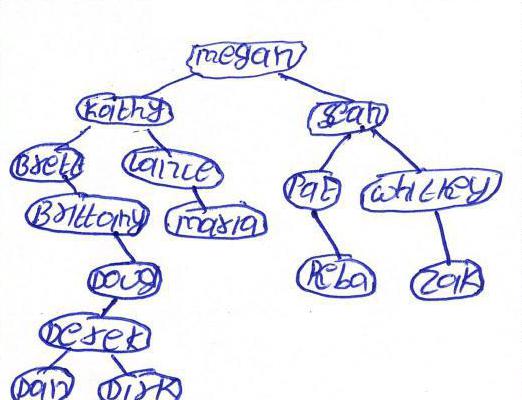 megan
Kathy
Sean
Brett
Lance
Pat
Whitney
Brittany
maria
Doug
Reba
Zak
Derek
Dan
Dirk